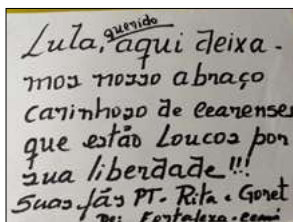 querido
Lula, aqui deixa-
mos nosso abraço
carinhoso de cearenses
que estão Loucos por
sua liberdade!!!
Suas fãs PT. Rita e Gonet
De: Fortaleza-Ceará